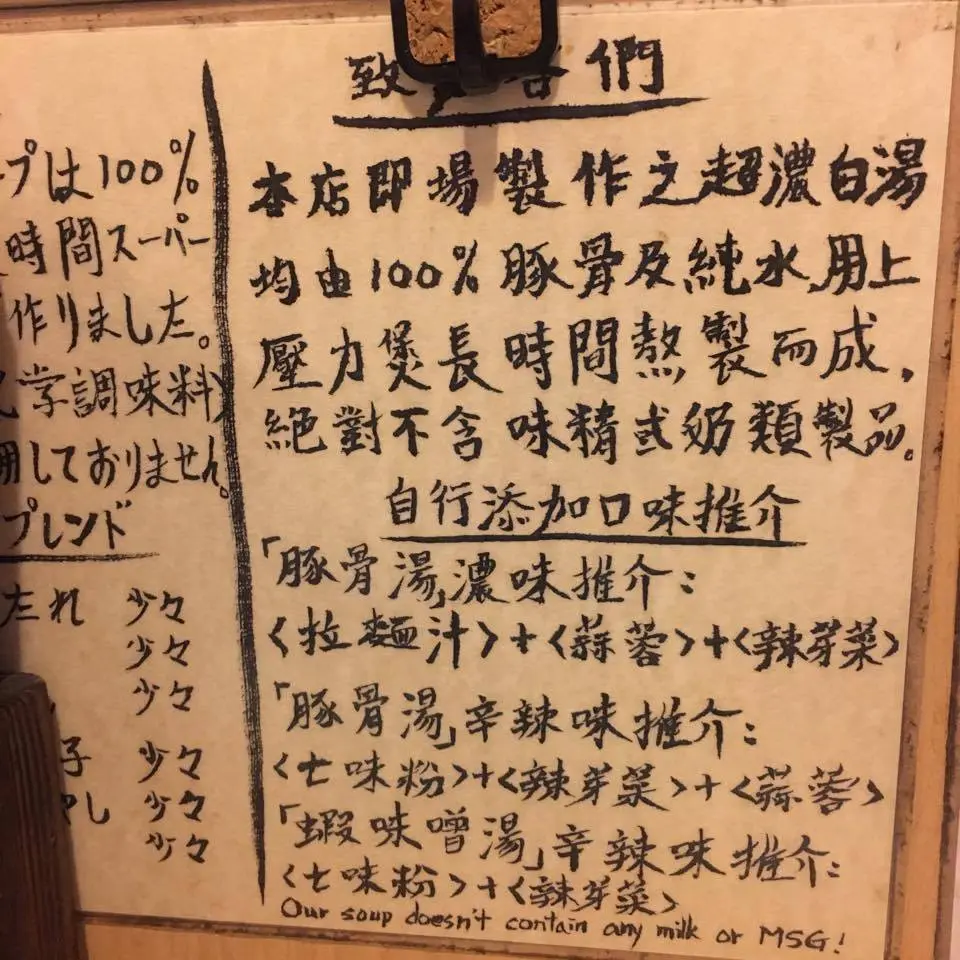 プは100%
時間スーパー
作りました。
学調味料)
用しておりません。
ブレンド
たれ 少々
少々
少々
子 少々
し 少々
少々
致 們
本店即場製作之超濃白湯
均由100%豚骨及純水,用上
壓力煲長時間熬製而成,
絕對不含味精或奶類製品。
自行添加口味推介
「豚骨湯」濃味推介:
<拉麵汁>+<蒜蓉>+<辣芽菜>
「豚骨湯」辛辣味推介:
<七味粉>+<辣芽菜>+<蒜蓉>
「蝦味噌湯」辛辣味推介:
<七味粉>+<辣芽菜>
Our soup doesn't contain any milk or MSG!